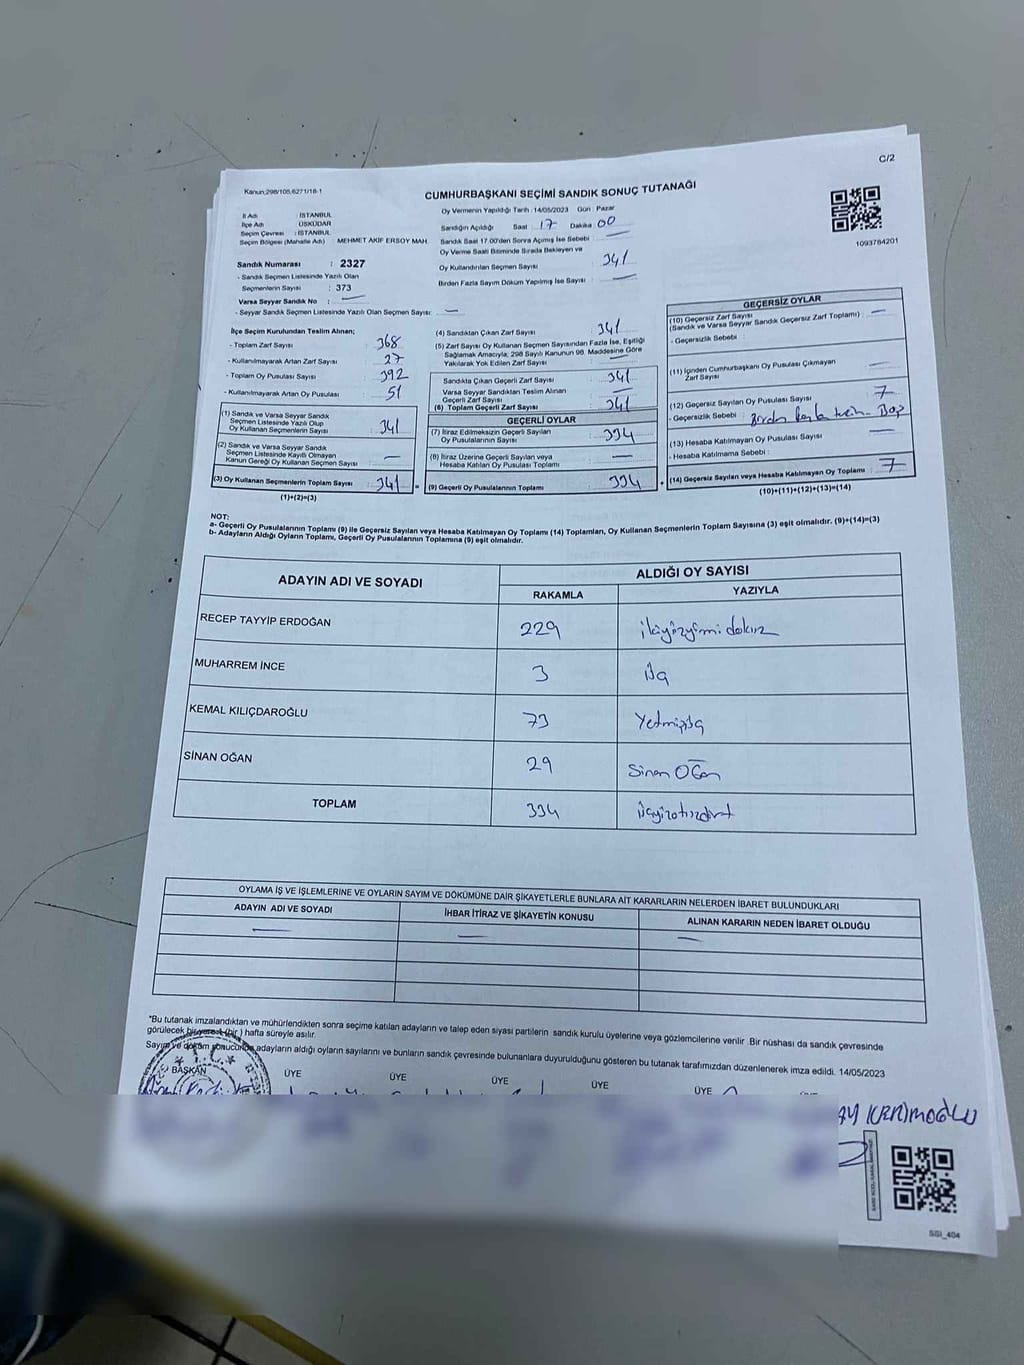 C/2
Kanun:298/105,6271/18-1
CUMHURBAŞKANI SEÇİMİ SANDIK SONUÇ TUTANAĞI
1093784201
İl Adı : İSTANBUL
İlçe Adı : ÜSKÜDAR
Seçim Çevresi : İSTANBUL
Seçim Bölgesi (Mahalle Adı) MEHMET AKİF ERSOY MAH.
Sandık Numarası : 2327
- Sandık Seçmen Listesinde Yazılı Olan
Seçmenlerin Sayısı : 373
Varsa Seyyar Sandık No : —
- Seyyar Sandık Seçmen Listesinde Yazılı Olan Seçmen Sayısı: —
Oy Vermenin Yapıldığı Tarih :14/05/2023 Gün : Pazar
Sandığın Açıldığı Saat 17 Dakika 00
Sandık Saat 17.00'den Sonra Açımış İse Sebebi —
Oy Verme Saati Bitiminde Sırada Bekleyen ve
Oy Kullandırılan Seçmen Sayısı 341
Birden Fazla Sayım Döküm Yapılmış İse Sayısı —
İlçe Seçim Kurulundan Teslim Alınan;
- Toplam Zarf Sayısı 368
- Kullanılmayarak Artan Zarf Sayısı 27
- Toplam Oy Pusulası Sayısı 392
- Kullanılmayarak Artan Oy Pusulası 51
(1) Sandık ve Varsa Seyyar Sandık
Seçmen Listesinde Yazılı Olup
Oy Kullanan Seçmenlerin Sayısı 341
(2) Sandık ve Varsa Seyyar Sandık
Seçmen Listesinde Kayıtlı Olmayan
Kanun Gereği Oy Kullanan Seçmen Sayısı —
(3) Oy Kullanan Seçmenlerin Toplam Sayısı 341
(1)+(2)=(3)
(4) Sandıktan Çıkan Zarf Sayısı 341
(5) Zarf Sayısı Oy Kullanan Seçmen Sayısından Fazla İse, Eşitliği
Sağlamak Amacıyla, 298 Sayılı Kanunun 98. Maddesine Göre
Yakılarak Yok Edilen Zarf Sayısı —
Sandıkta Çıkan Geçerli Zarf Sayısı 341
Varsa Seyyar Sandıktan Teslim Alınan
Geçerli Zarf Sayısı —
(6) Toplam Geçerli Zarf Sayısı 341
GEÇERLİ OYLAR
(7) İtiraz Edilmeksizin Geçerli Sayılan
Oy Pusulalarının Sayısı 334
(8) İtiraz Üzerine Geçerli Sayılan veya
Hesaba Katılan Oy Pusulası Toplamı —
(9) Geçerli Oy Pusulalarının Toplamı 334
GEÇERSİZ OYLAR
(10) Geçersiz Zarf Sayısı —
(Sandık ve Varsa Seyyar Sandık Geçersiz Zarf Toplamı) :
- Geçersizlik Sebebi :
(11) İçinden Cumhurbaşkanı Oy Pusulası Çıkmayan
Zarf Sayısı —
(12) Geçersiz Sayılan Oy Pusulası Sayısı 7
- Geçersizlik Sebebi : Birden fazla Boş
(13) Hesaba Katılmayan Oy Pusulası Sayısı —
- Hesaba Katılmama Sebebi :
(14) Geçersiz Sayılan veya Hesaba Katılmayan Oy Toplamı : 7
(10)+(11)+(12)+(13)=(14)
NOT:
a- Geçerli Oy Pusulalarının Toplamı (9) ile Geçersiz Sayılan veya Hesaba Katılmayan Oy Toplamı (14) Toplamları, Oy Kullanan Seçmenlerin Toplam Sayısına (3) eşit olmalıdır. (9)+(14)=(3)
b- Adayların Aldığı Oyların Toplamı, Geçerli Oy Pusulalarının Toplamına (9) eşit olmalıdır.
ADAYIN ADI VE SOYADI
ALDIĞI OY SAYISI
RAKAMLA YAZIYLA
RECEP TAYYİP ERDOĞAN 229 ikiyüzyirmidokuz
MUHARREM İNCE 3 üç
KEMAL KILIÇDAROĞLU 73 Yetmişüç
SİNAN OĞAN 29 Sinan OĞan
TOPLAM 334 üçyüzotuzdört
OYLAMA İŞ VE İŞLEMLERİNE VE OYLARIN SAYIM VE DÖKÜMÜNE DAİR ŞİKAYETLERLE BUNLARA AİT KARARLARIN NELERDEN İBARET BULUNDUKLARI
ADAYIN ADI VE SOYADI İHBAR İTİRAZ VE ŞİKAYETİN KONUSU ALINAN KARARIN NEDEN İBARET OLDUĞU
— — —
*Bu tutanak imzalandıktan ve mühürlendikten sonra seçime katılan adayların ve talep eden siyasi partilerin sandık kurulu üyelerine veya gözlemcilerine verilir .Bir nüshası da sandık çevresinde
görülecek bir yerde (bir ) hafta süreyle asılır.
Sayım ve döküm sonucunda adayların aldığı oyların sayılarını ve bunların sandık çevresinde bulunanlara duyurulduğunu gösteren bu tutanak tarafımızdan düzenlenerek imza edildi. 14/05/2023
T.C.
BAŞKAN ÜYE ÜYE ÜYE ÜYE ÜYE
KERİMOĞLU
SGI_404